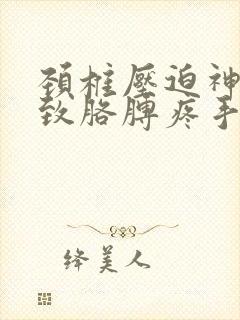 颈柱壓迫神
致胳膊疼手
绛美人